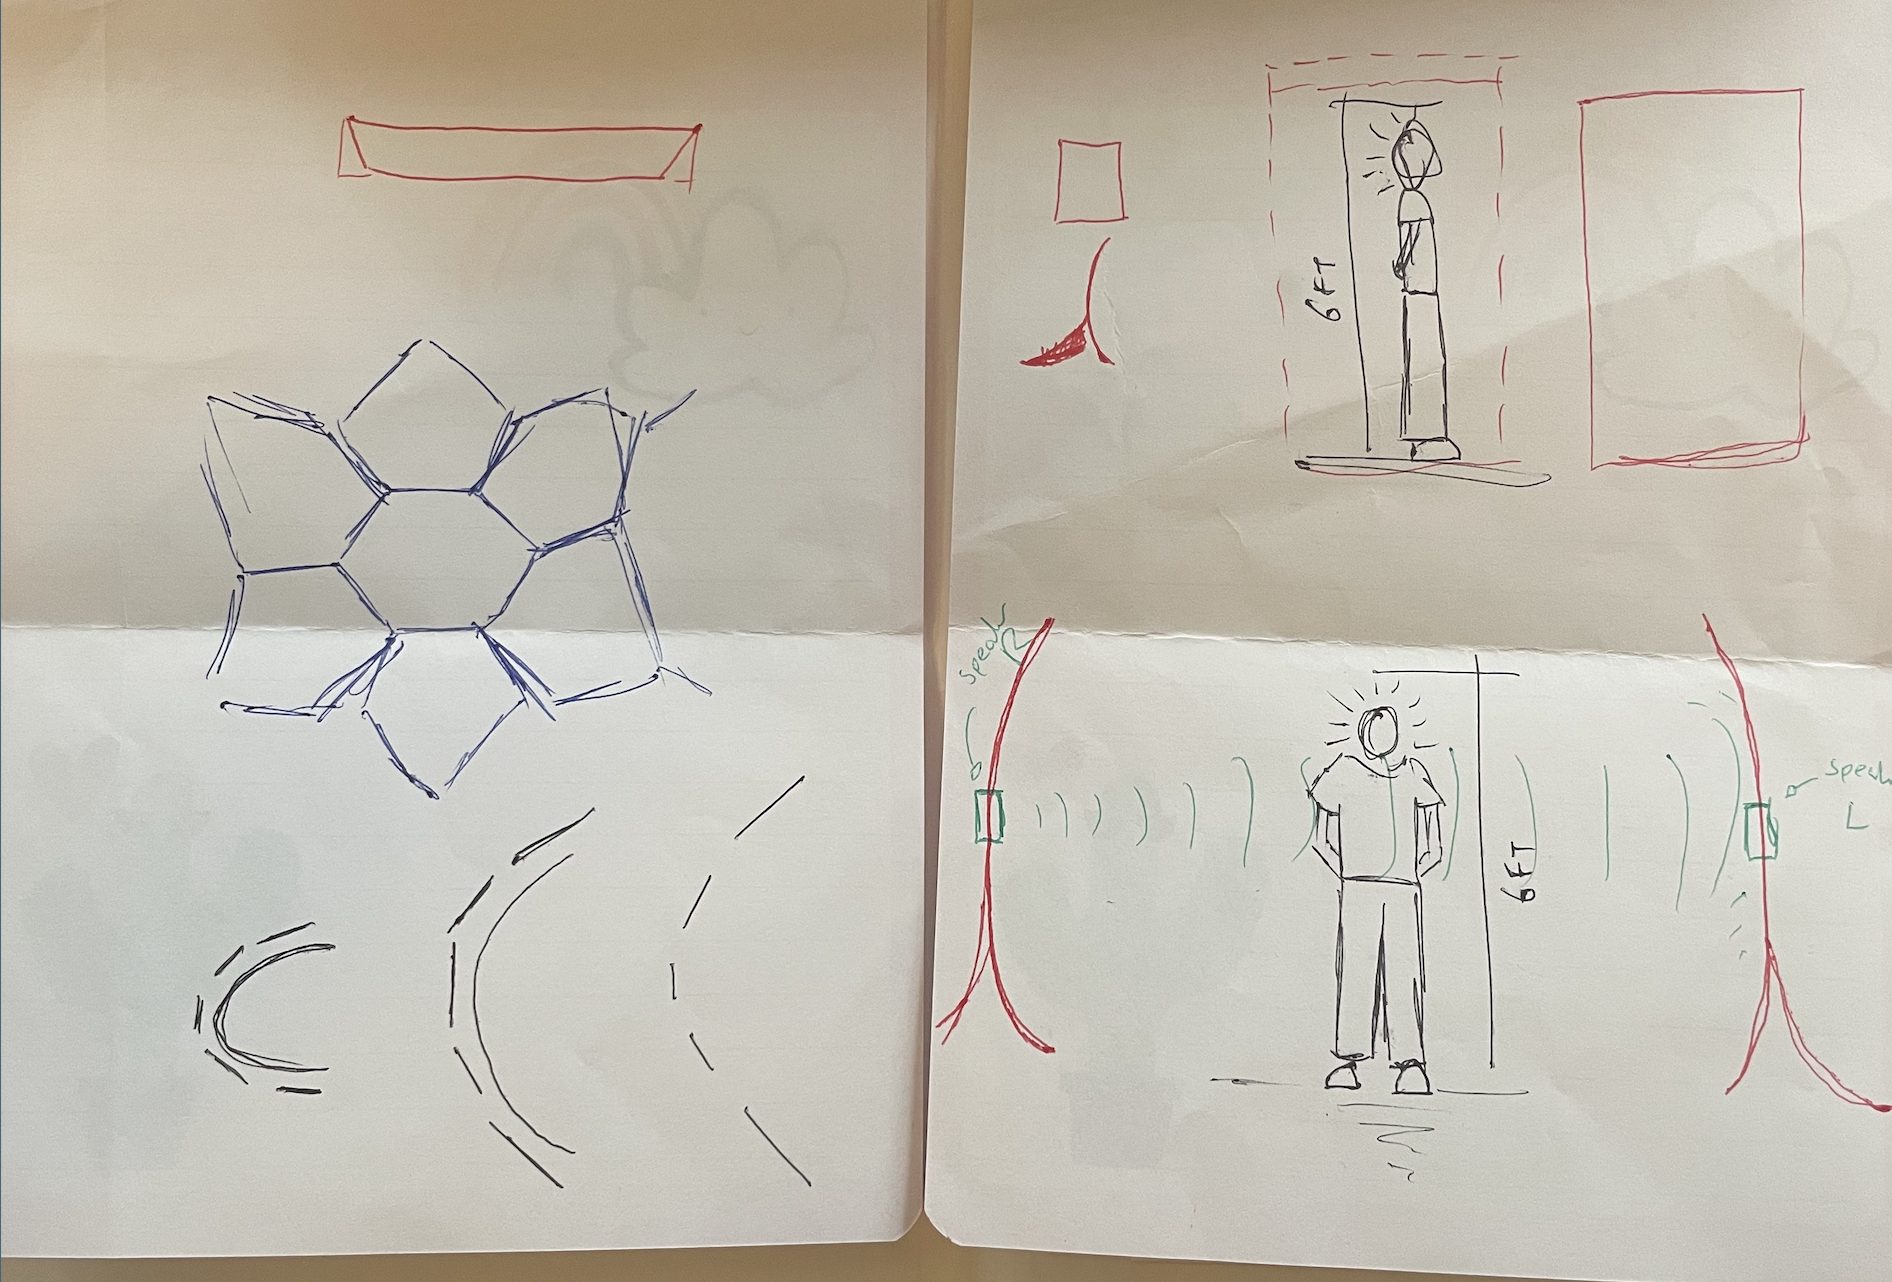 6FT
Speak
R
6FT
Speak
L